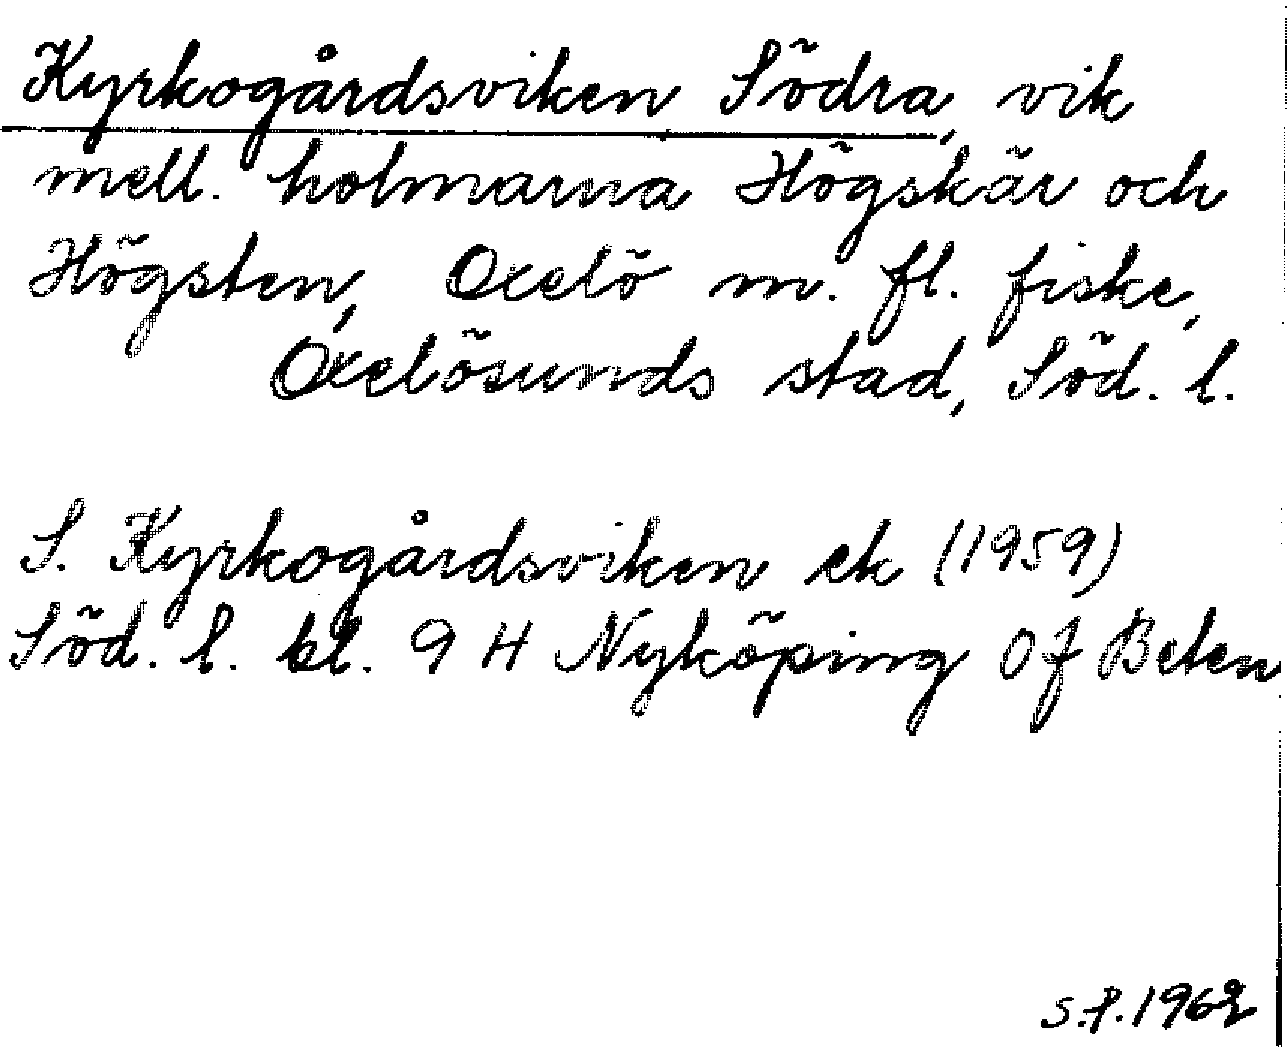 Kyrkogårdsviken Södra, vik
mell. holmarna Högskär och
Högsten, Oxelö m. fl. fiske,
Oxelösunds stad, Söd. l.
S. Kyrkogårdsviken ek (1959)
Söd. l. bl. 9 H Nyköping 0f Beten
S.P. 1962